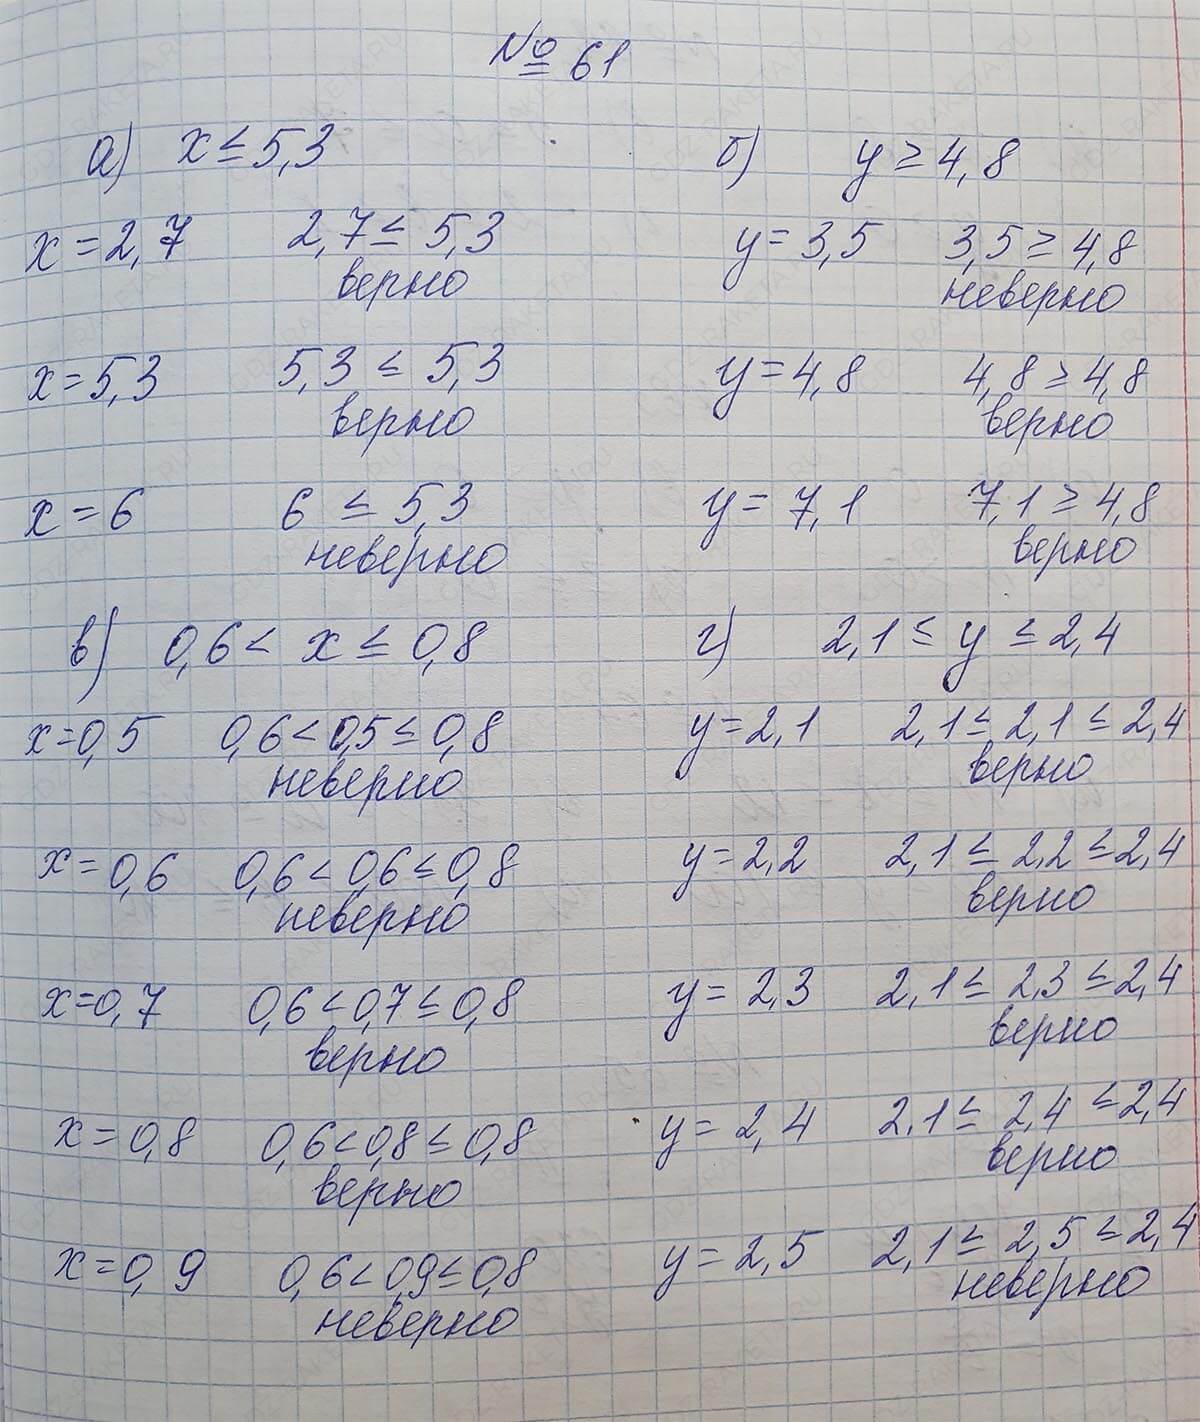 № 61
а) x ≤ 5,3
x = 2,7 2,7 ≤ 5,3
верно
x = 5,3 5,3 ≤ 5,3
верно
x = 6 6 ≤ 5,3
неверно
б) y ≥ 4,8
y = 3,5 3,5 ≥ 4,8
неверно
y = 4,8 4,8 ≥ 4,8
верно
y = 7,1 7,1 ≥ 4,8
верно
в) 0,6 < x ≤ 0,8
x = 0,5 0,6 < 0,5 ≤ 0,8
неверно
x = 0,6 0,6 < 0,6 ≤ 0,8
неверно
x = 0,7 0,6 < 0,7 ≤ 0,8
верно
x = 0,8 0,6 < 0,8 ≤ 0,8
верно
x = 0,9 0,6 < 0,9 ≤ 0,8
неверно
г) 2,1 ≤ y ≤ 2,4
y = 2,1 2,1 ≤ 2,1 ≤ 2,4
верно
y = 2,2 2,1 ≤ 2,2 ≤ 2,4
верно
y = 2,3 2,1 ≤ 2,3 ≤ 2,4
верно
y = 2,4 2,1 ≤ 2,4 ≤ 2,4
верно
y = 2,5 2,1 ≤ 2,5 ≤ 2,4
неверно